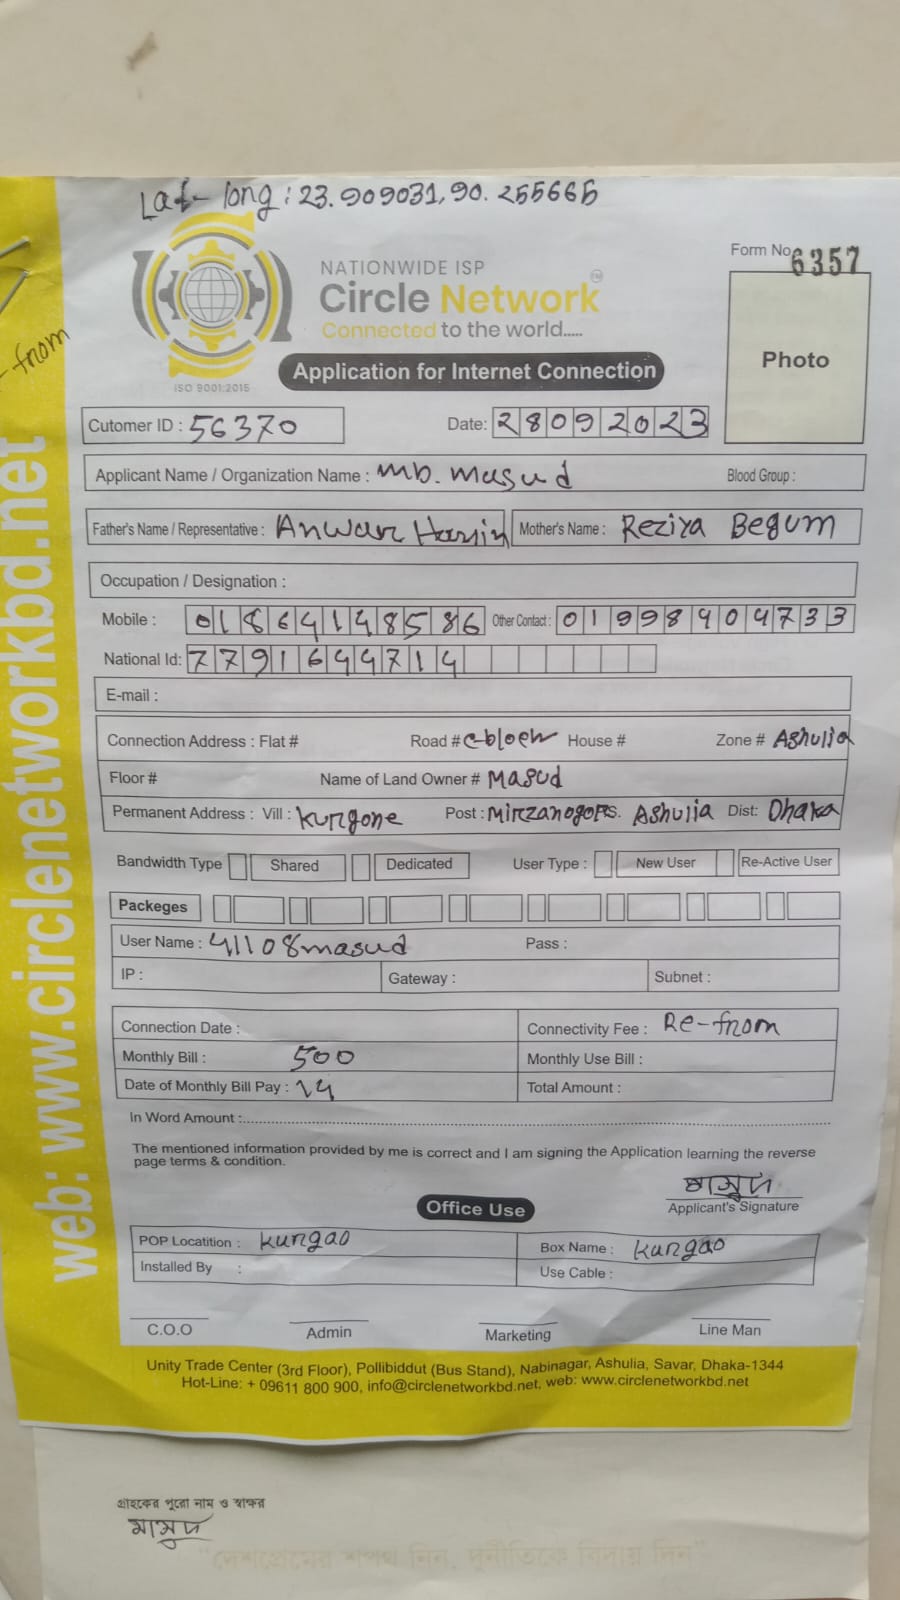 Lat- long: 23.909031, 90.255665
Form No 6357
NATIONWIDE ISP
Circle Network
Connected to the world.....
ISO 9001:2015
Application for Internet Connection
Photo
- from
web: www.circlenetworkbd.net
Cutomer ID : 56370 Date: 28092023
Applicant Name / Organization Name : MD. Masud Blood Group :
Father's Name / Representative : Anwar Mother's Name : Reziya Begum
Occupation / Designation :
Mobile : 01864148586 Other Contact : 01998904733
National Id: 7791644714
E-mail :
Connection Address : Flat # Road # House # Zone # Ashulia
Floor # Name of Land Owner # Masud
Permanent Address : Vill : Kurgone Post : Ashulia Dist: Dhaka
Bandwidth Type Shared Dedicated User Type : New User Re-Active User
Packeges
User Name : 41108masud Pass :
IP : Gateway : Subnet :
Connection Date : Connectivity Fee : Re-from
Monthly Bill : 500 Monthly Use Bill :
Date of Monthly Bill Pay : 14 Total Amount :
In Word Amount :
The mentioned information provided by me is correct and I am signing the Application learning the reverse
page terms & condition.
মাসুদ
Applicant's Signature
Office Use
POP Locatition : Kurgao Box Name : Kurgao
Installed By : Use Cable :
C.O.O Admin Marketing Line Man
Unity Trade Center (3rd Floor), Pollibiddut (Bus Stand), Nabinagar, Ashulia, Savar, Dhaka-1344
Hot-Line: + 09611 800 900, info@circlenetworkbd.net, web: www.circlenetworkbd.net
গ্রাহকের পুরো নাম ও স্বাক্ষর
মাসুদ
"দেশপ্রেমের শপথ নিন, দুর্নীতিকে বিদায় দিন"